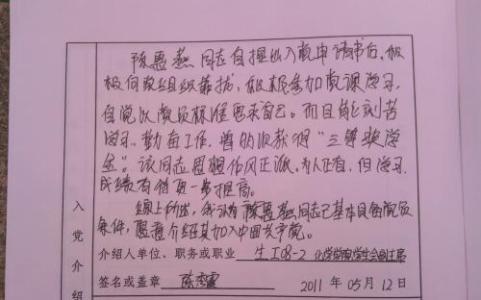 陈惠燕同志自提出入党申请书后，积
极向党组织靠拢，积极参加党课学习，
自觉以党员标准要求自己。而且能刻苦
学习，勤奋工作，曾收获得"三等奖学
金"。该同志思想作风正派，为人正直，但学习
成绩有待更一步提高。
综上所述，我认为陈惠燕同志已基本具备党员
条件，愿意介绍其加入中国共产党。
入党介绍
介绍人单位、职务或职业 生工08-2 化学学院学生会副主席
签名或盖章 陈
2011 年 05 月 12 日